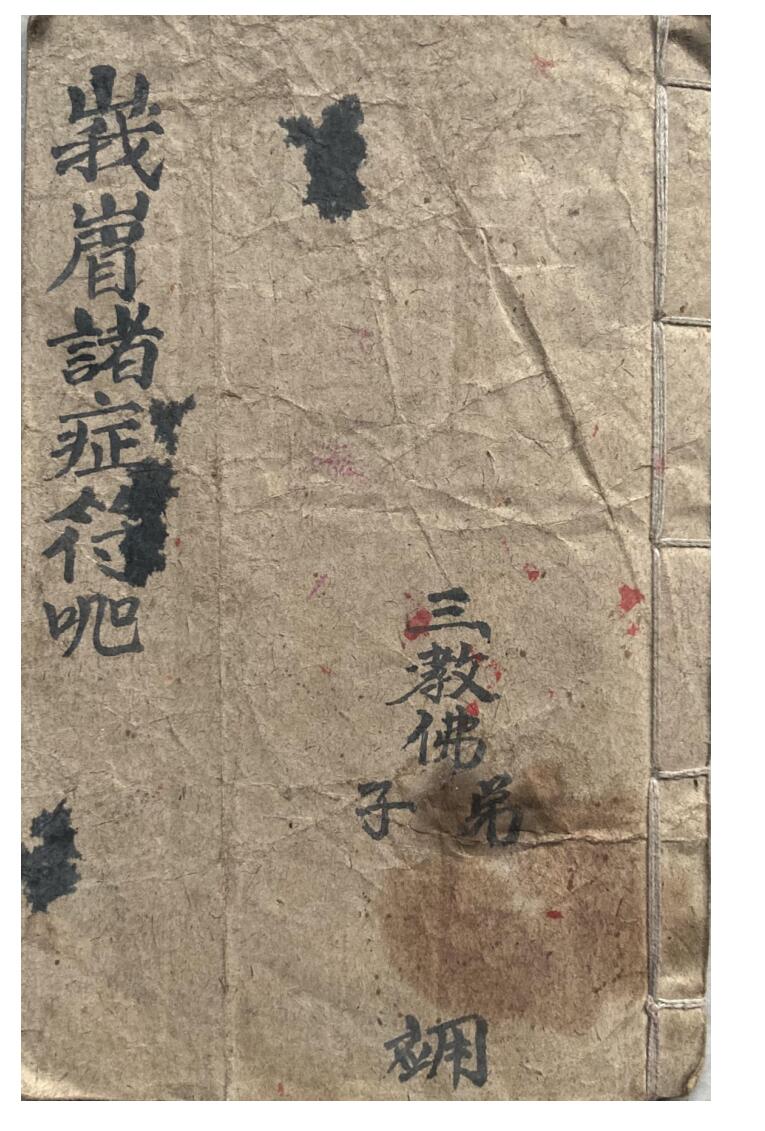 三教佛
弟子
峩嵋諸症符呪